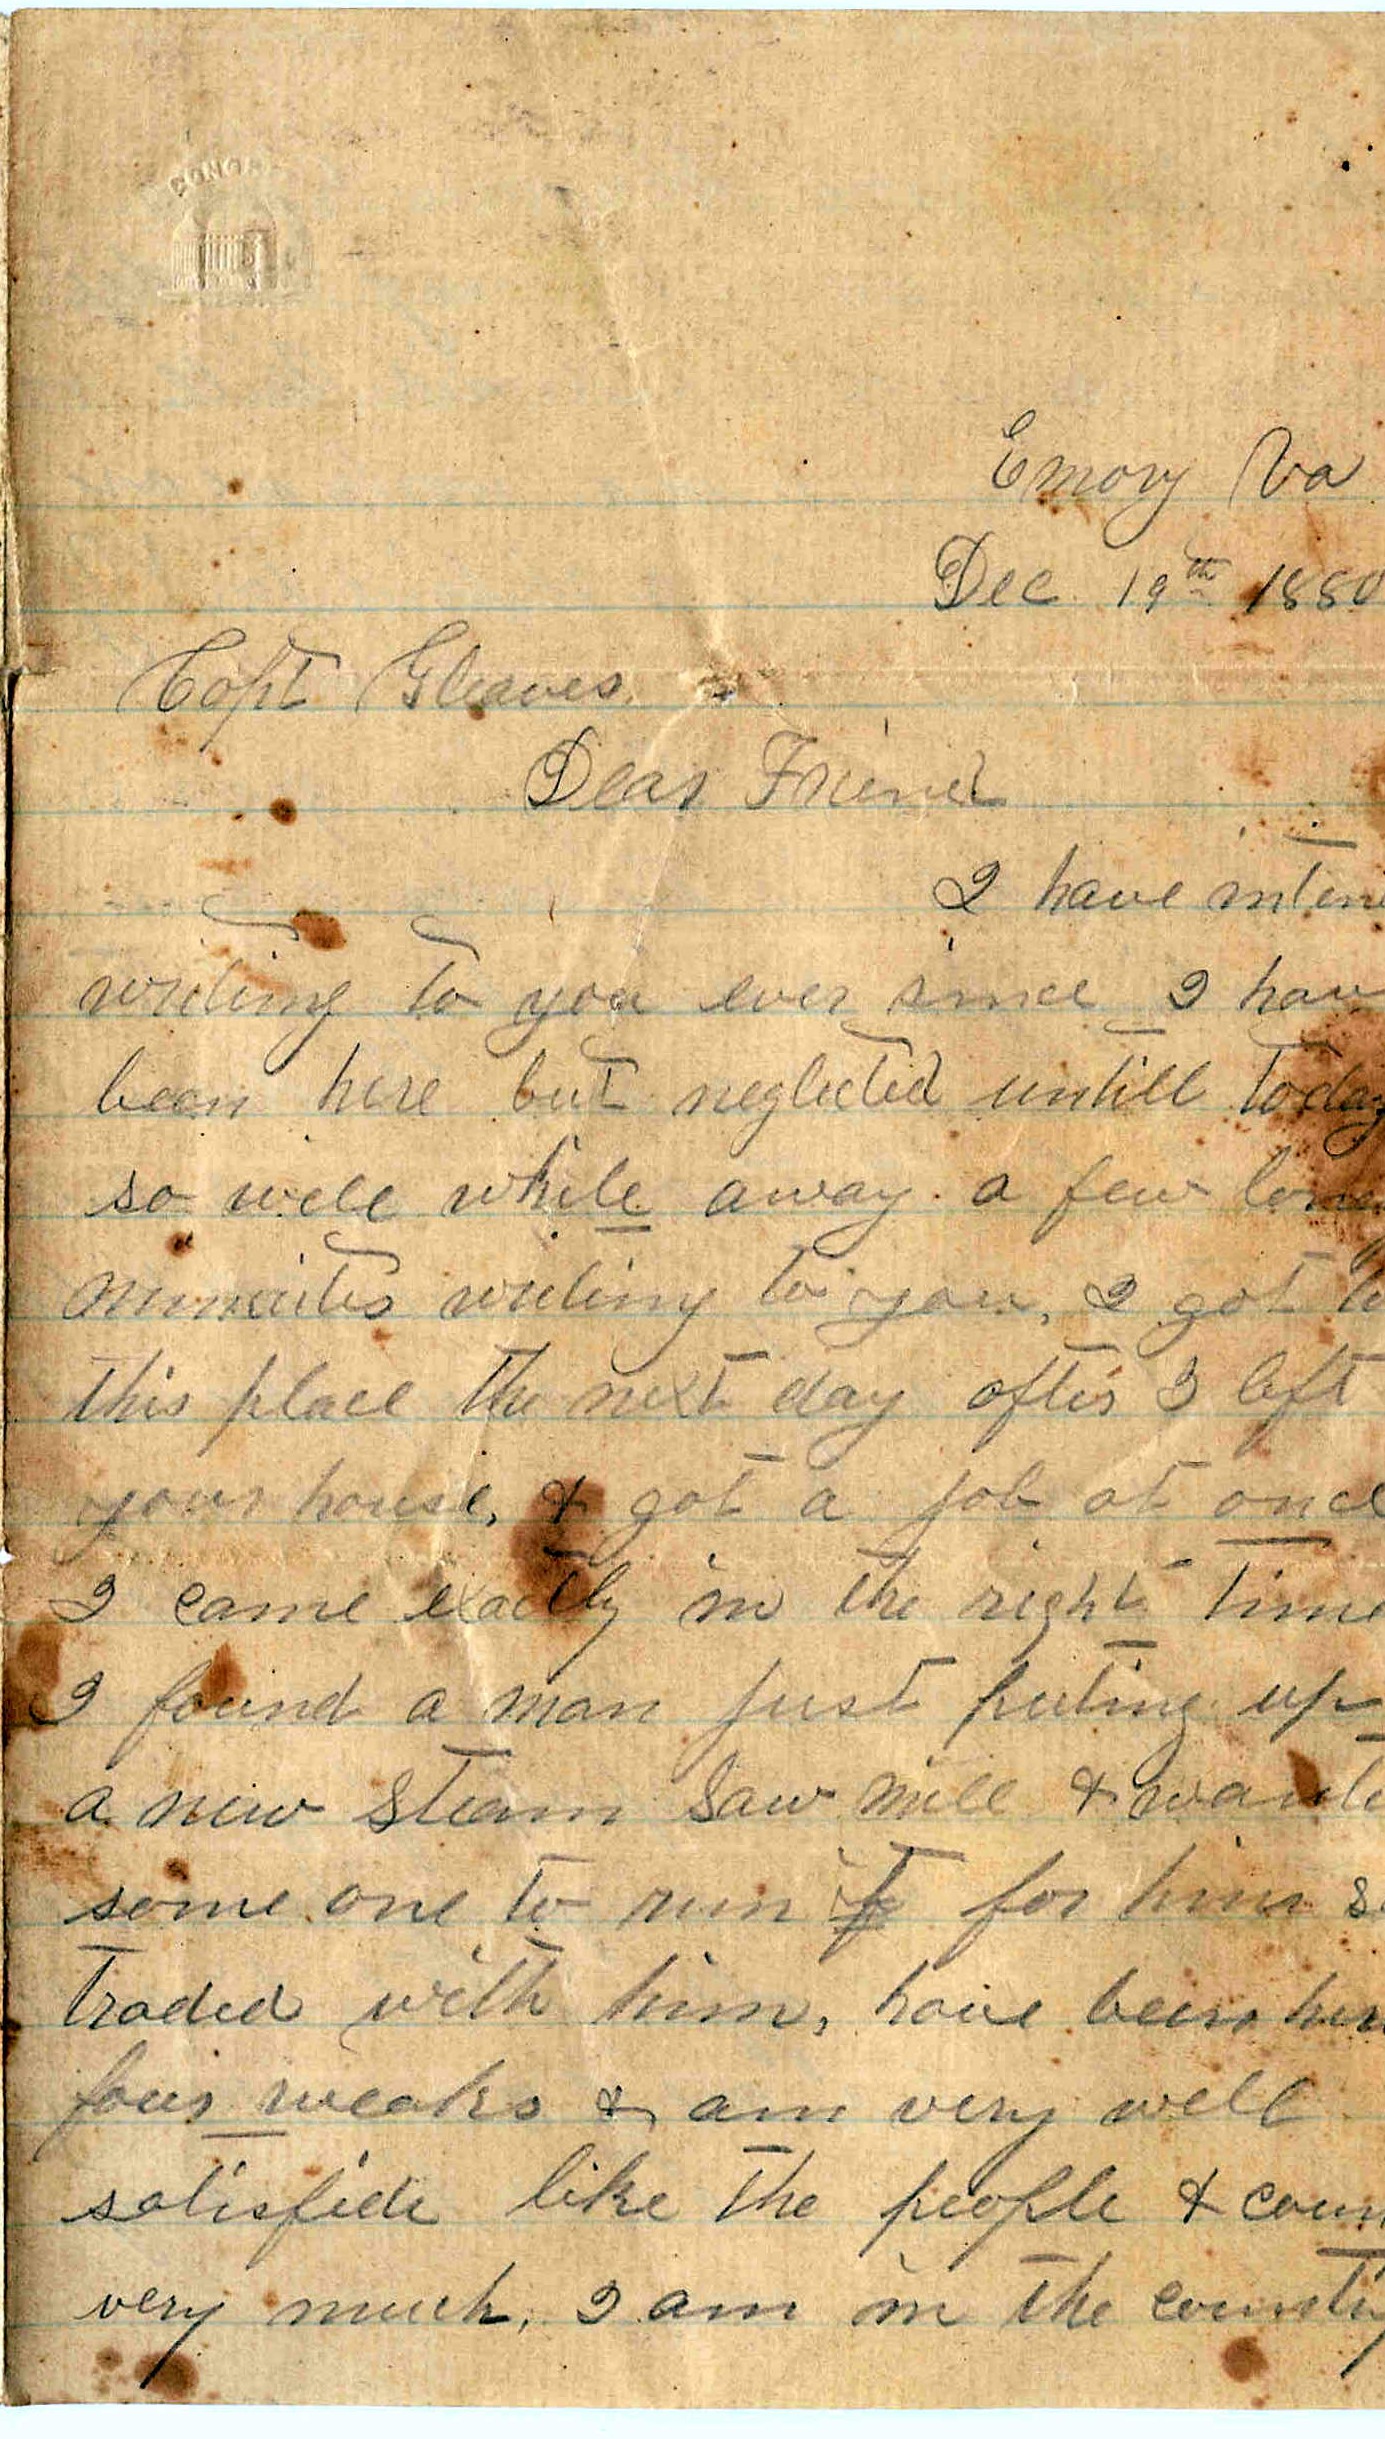 CONGR
Emory Va
Dec 19th 1880
Capt Gleaves.
Dear Friend
I have inten
writing to you ever since I hav
been here but neglected untill today
so will while away a few lone
minuites writing to you, I got to
this place the next day after I left
your house, & got a job at once
I came exactly in the right time
I found a man just puting up
a new Steam Saw mill & wante
some one to run it for him so
traded with him, have been her
four weaks & am very well
satisfide like the people & coun
very much, I am in the country